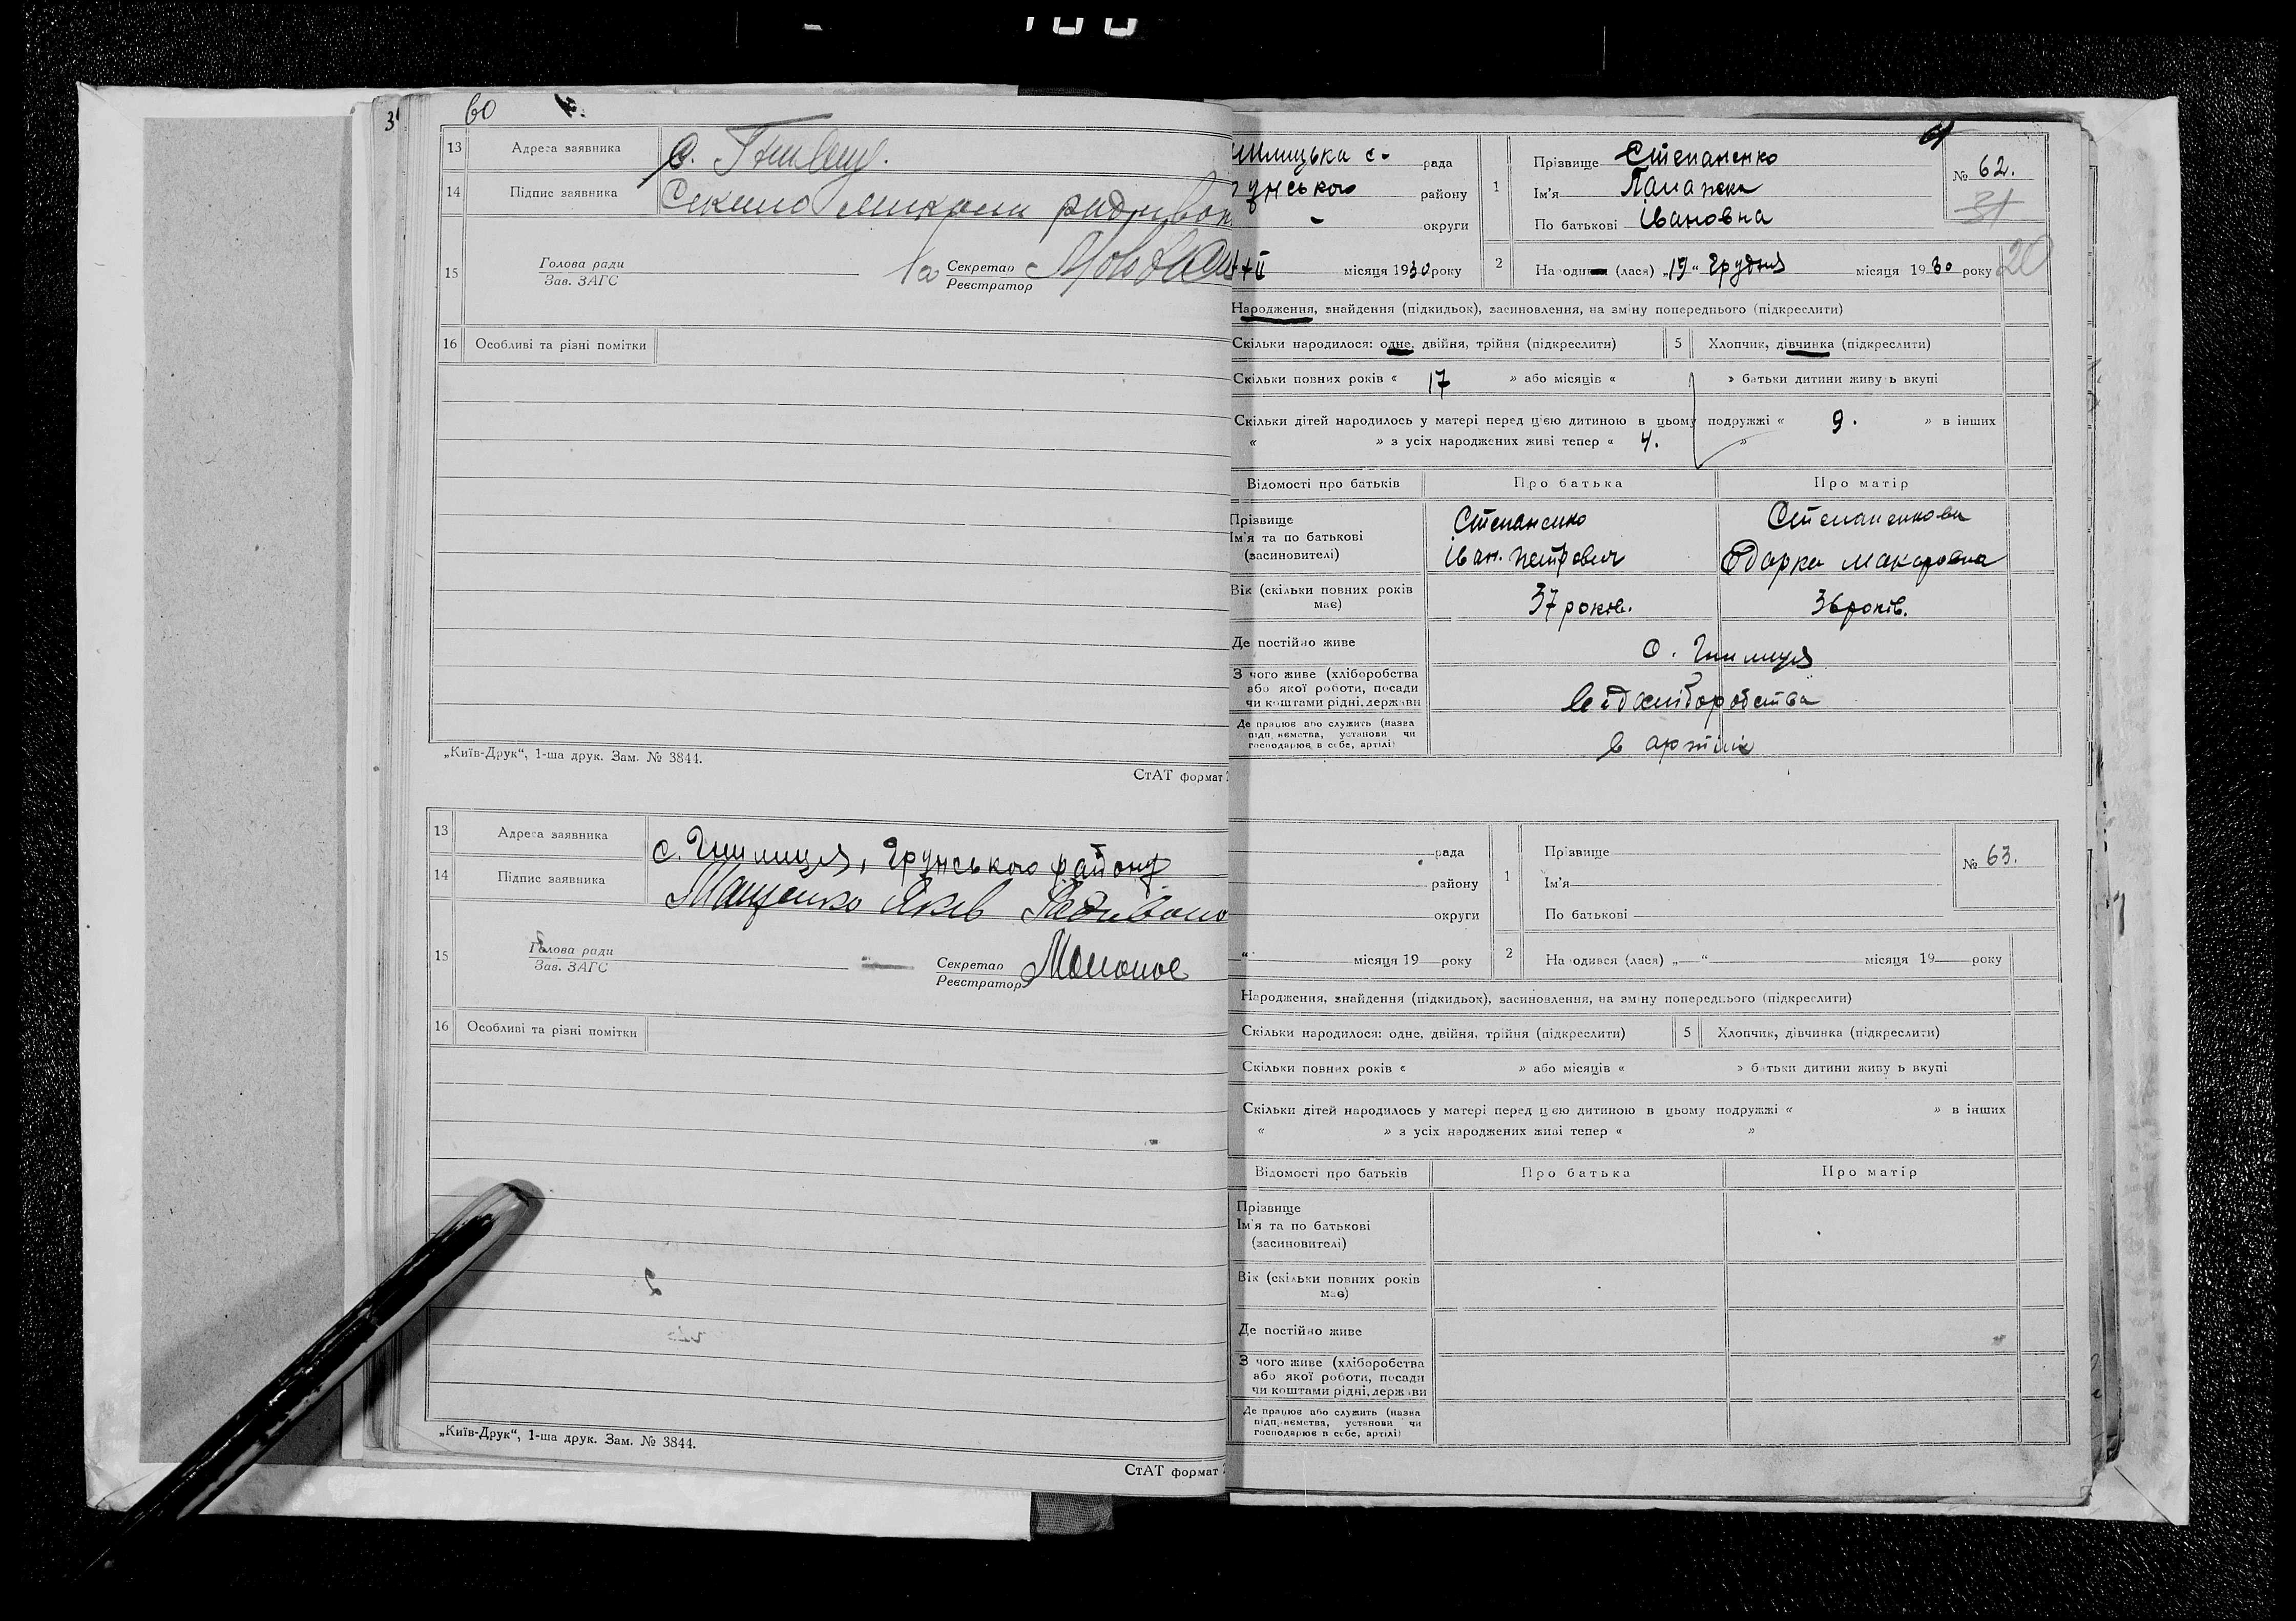 60
13 Адреса заявника с.
14 Підпис заявника
15 Голова ради
Зав. ЗАГС
Секретар
Реєстратор
16 Особливі та різні помітки
„Київ-Друк“, 1-ша друк. Зам. № 3844.
СтАТ формат
13 Адреса заявника с. Гнилиця, Грунського району
14 Підпис заявника Мащенко Яків
15 Голова ради
Зав. ЗАГС
Секретар
Реєстратор
16 Особливі та різні помітки
„Київ-Друк“, 1-ша друк. Зам. № 3844.
СтАТ формат
61
илицька с. рада
унського району
округи
місяця 1930 року
1 Прізвище Степаненко
Ім'я
По батькові Івановна
№ 62.
31
2 Народився (лася) „19“ Грудня місяця 1930 року
20
Народження, знайдення (підкидьок), засиновлення, на зміну попереднього (підкреслити)
Скільки народилося: одне, двійня, трійня (підкреслити) 5 Хлопчик, дівчинка (підкреслити)
Скільки повних років « 17 » або місяців « » батьки дитини живуть вкупі
Скільки дітей народилось у матері перед цією дитиною в цьому подружжі « 9. » в інших
« » з усіх народжених живі тепер « 4. »
Відомості про батьків Про батька Про матір
Прізвище Степаненко Степаненкова
Ім'я та по батькові Іван Петрович Одарка Макаровна
(засиновителі)
Вік (скільки повних років має) 37 років. 36 років.
Де постійно живе с. Гнилиця
З чого живе (хліборобства
або якої роботи, посади
чи коштами рідні, держави від хліборобства
Де працює або служить (назва
підприємства, установи чи
господарює в себе, артілі) в артілі
рада
району
округи
“ місяця 19 року
1 Прізвище
Ім'я
По батькові
№ 63.
2 Народився (лася) „ “ місяця 19 року
Народження, знайдення (підкидьок), засиновлення, на зміну попереднього (підкреслити)
Скільки народилося: одне, двійня, трійня (підкреслити) 5 Хлопчик, дівчинка (підкреслити)
Скільки повних років « » або місяців « » батьки дитини живуть вкупі
Скільки дітей народилось у матері перед цією дитиною в цьому подружжі « » в інших
« » з усіх народжених живі тепер « »
Відомості про батьків Про батька Про матір
Прізвище
Ім'я та по батькові
(засиновителі)
Вік (скільки повних років
має)
Де постійно живе
З чого живе (хліборобства
або якої роботи, посади
чи коштами рідні, держави
Де працює або служить (назва
підприємства, установи чи
господарює в себе, артілі)